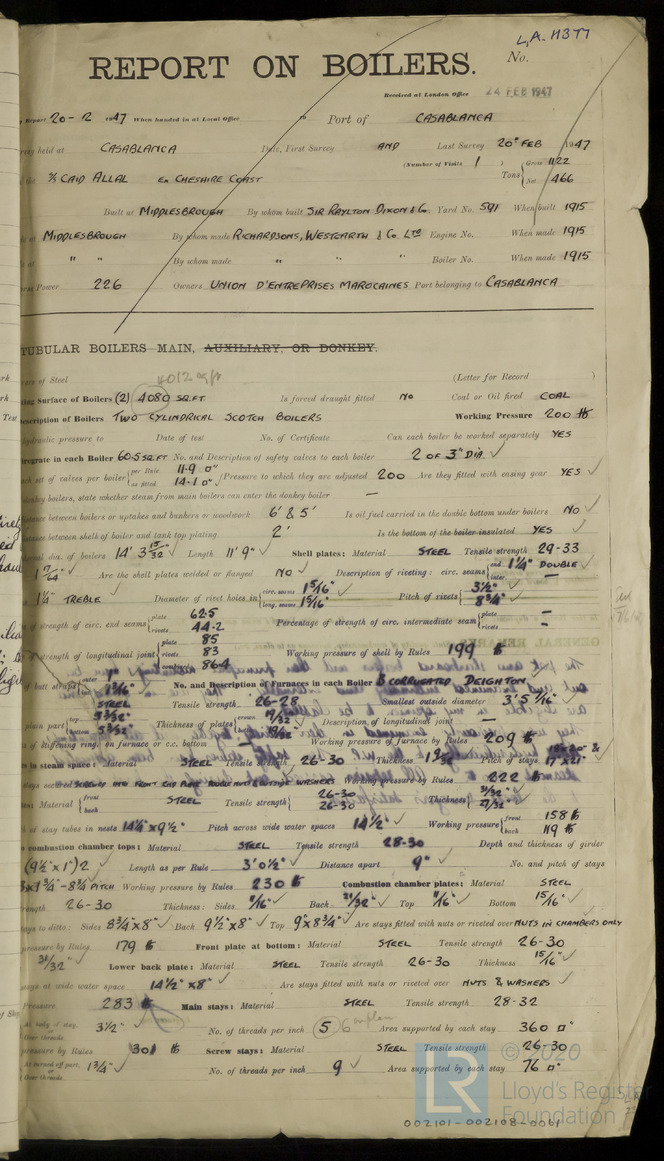 L.A. 11377
REPORT ON BOILERS.
No.
Received at London Office 24 FEB 1947
Report 20-2 1947 When handed in at Local Office " Port of CASABLANCA
held at CASABLANCA Date, First Survey AND Last Survey 20th FEB 1947
(Number of Visits 1 )
the S/S CAID ALLAL Ex CHESHIRE COAST Tons Gross 1122 Net 466
Built at MIDDLESBROUGH By whom built SIR RAYLTON DIXON & Co. Yard No. 591 When built 1915
at MIDDLESBROUGH By whom made RICHARDSONS, WESTGARTH & Co. LTD Engine No. When made 1915
at " " By whom made " " " Boiler No. When made 1915
Power 226 Owners UNION D'ENTREPRISES MAROCAINES Port belonging to CASABLANCA
TUBULAR BOILERS MAIN, AUXILIARY, OR DONKEY.
4012 sq ft
of Steel (Letter for Record )
Surface of Boilers (2) 4080 SQ.FT Is forced draught fitted NO Coal or Oil fired COAL
Description of Boilers TWO CYLINDRICAL SCOTCH BOILERS Working Pressure 200 lb
pressure to Date of test No. of Certificate Can each boiler be worked separately YES
in each Boiler 60.5 SQ FT No. and Description of safety valves to each boiler 2 OF 3" DIA. ✓
set of valves per boiler per Rule 11.9 □" as fitted 14.1 □" ✓ Pressure to which they are adjusted 200 Are they fitted with easing gear YES ✓
donkey boilers, state whether steam from main boilers can enter the donkey boiler —
between boilers or uptakes and bunkers or woodwork 6' & 5' Is oil fuel carried in the double bottom under boilers NO ✓
between shell of boiler and tank top plating 2' Is the bottom of the boiler insulated YES ✓
dia. of boilers 14' 3 15/32" ✓ Length 11' 9" ✓ Shell plates: Material STEEL Tensile strength 29-33
1 7/64" ✓ Are the shell plates welded or flanged NO ✓ Description of riveting: circ. seams end 1¼" DOUBLE ✓ inter. —
1¼ TREBLE ✓ Diameter of rivet holes in circ. seams 1 5/16" ✓ long. seams 1 5/16" ✓ Pitch of rivets 3½" ✓ 8¾" ✓
of strength of circ. end seams plate 62.5 rivets 44.2 Percentage of strength of circ. intermediate seam plate — rivets —
of strength of longitudinal joint plate 85 rivets 83 combined 86.4 Working pressure of shell by Rules 199 lb
of butt straps 1 3/16" ✓ No. and Description of Furnaces in each Boiler 3 CORRUGATED DEIGHTON
STEEL Tensile strength 26-28 Smallest outside diameter 3' 5 1/16" ✓
plain part top bottom Thickness of plates crown 19/32 ✓ bottom 19/32 ✓ Description of longitudinal joint —
of stiffening ring on furnace or c.c. bottom Working pressure of furnace by Rules 209 lb
in steam space: Material STEEL Tensile strength 26-30 Thickness Pitch of stays 17" x 21" ✓
Working pressure by Rules 222 lb
Material front back STEEL Tensile strength 26-30 26-30 Thickness 31/32" ✓ 27/32" ✓
of stay tubes in nests 14¼" x 9½" Pitch across wide water spaces 14½" ✓ Working pressure front 158 lb back 119 lb
combustion chamber tops: Material STEEL Tensile strength 28-30 Depth and thickness of girder
(9½" x 1") 2 ✓ Length as per Rule 3' 0½" ✓ Distance apart 9" ✓ No. and pitch of stays
3 x 1¾" - 8¾ PITCH Working pressure by Rules 230 lb Combustion chamber plates: Material STEEL
26-30 Thickness: Sides 11/16" ✓ Back 21/32" ✓ Top 11/16" ✓ Bottom 15/16" ✓
stays to ditto: Sides 8¾" x 8" ✓ Back 9½" x 8" ✓ Top 9" x 8¾" ✓ Are stays fitted with nuts or riveted over NUTS IN CHAMBERS ONLY
pressure by Rules 179 lb Front plate at bottom: Material STEEL Tensile strength 26-30
31/32" ✓ Lower back plate: Material STEEL Tensile strength 26-30 Thickness 15/16" ✓
stays at wide water space 14½" x 8" ✓ Are stays fitted with nuts or riveted over NUTS & WASHERS ✓
Pressure 283 lb Main stays: Material STEEL Tensile strength 28-32
At body of stay, or Over threads 3½" ✓ No. of threads per inch 5 6 on plan Area supported by each stay 360 □" ✓
pressure by Rules 301 lb Screw stays: Material STEEL Tensile strength 26-30
At turned off part, or Over threads 1¾" ✓ No. of threads per inch 9 ✓ Area supported by each stay 76 □" ✓
LR
© 2020
Lloyd's Register
Foundation
002101-002108-0061